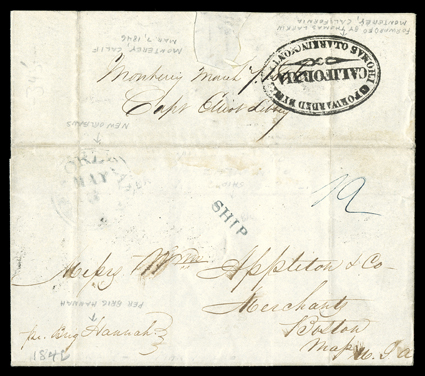 FORWARDED BY THOMAS LARKIN
MONTEREY, CALIFORNIA
MONTEREY, CALIF
MAR 7 1846
Monterey March 7
Capt Eliot Libby
FORWARDED BY
THOMAS O LARKIN
CALIFORNIA
NEW ORLEANS
MAY
12
SHIP
Messrs Wm Appleton & Co
Merchants
Boston
Mass U.S.A
PER BRIG HANNAH
per Brig Hannah
2481